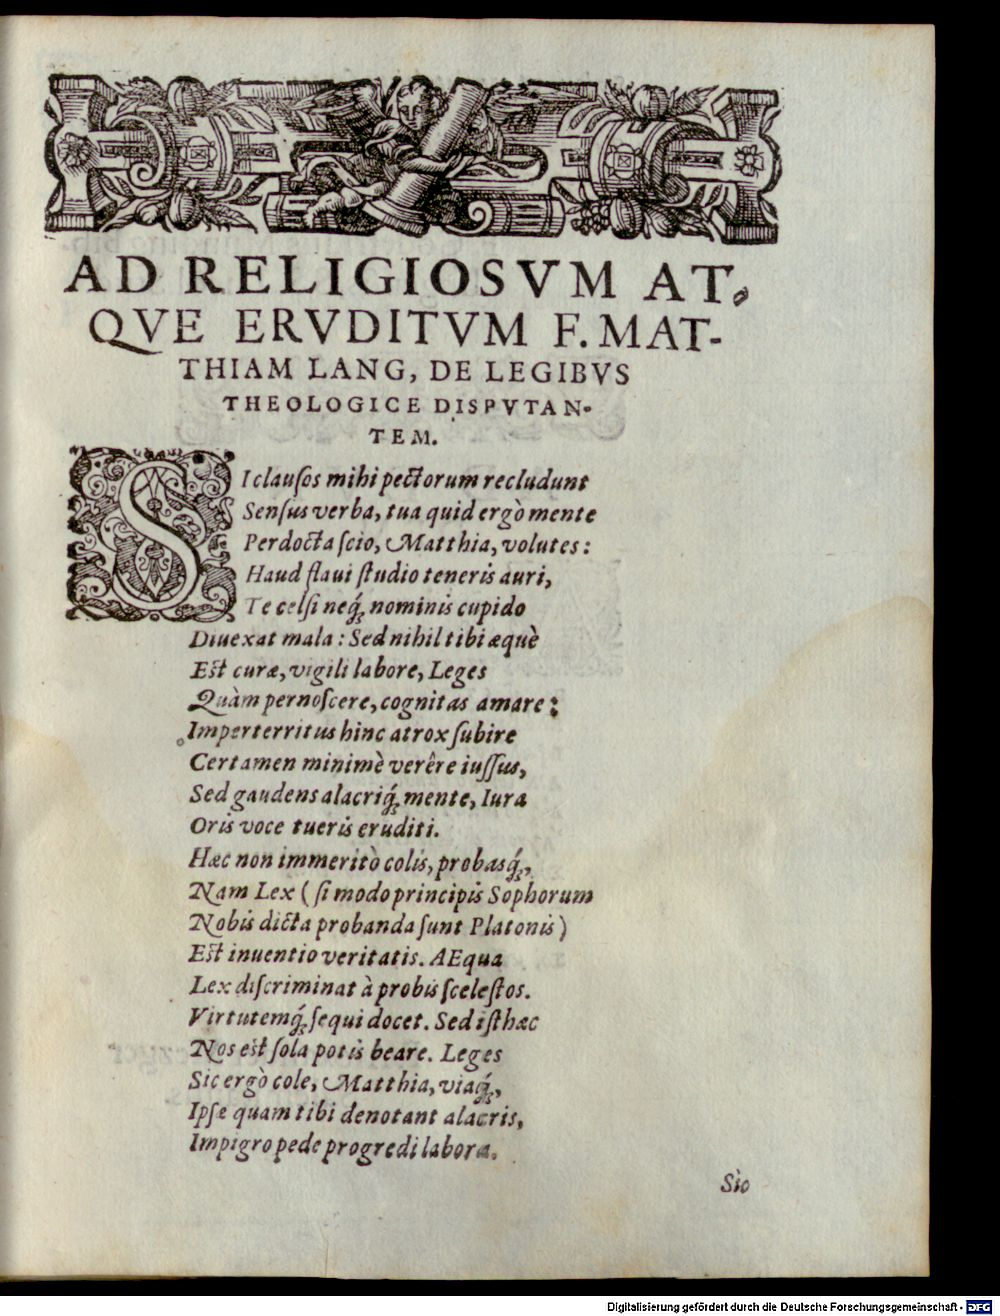 AD RELIGIOSVM AT,
QVE ERVDITVM F. MAT-
THIAM LANG, DE LEGIBVS
THEOLOGICE DISPVTAN-
TEM.
SI clauſos mihi pectorum recludunt
Senſus verba, tua quid ergò mente
Perdocta ſcio, Matthia, volutes:
Haud flaui ſtudio teneris auri,
Te celſi neq́; nominis cupido
Diuexat mala: Sed nihil tibi æquè
Est curæ, vigili labore, Leges
Quàm pernoſcere, cognitas amare:
Imperterritus hinc atrox ſubire
Certamen minimè verêre iuſſus,
Sed gaudens alacriq́; mente, Iura
Oris voce tueris eruditi.
Hæc non immeritò colis, probasq́;,
Nam Lex (ſi modo principis Sophorum
Nobis dicta probanda ſunt Platonis)
Est inuentio veritatis. AEqua
Lex diſcriminat à probis ſceleſtos.
Virtutemq́; ſequi docet. Sed iſthæc
Nos est ſola potis beare. Leges
Sic ergò cole, Matthia, viaq́;,
Ipſæ quam tibi denotant alacris,
Impigro pede progredi labora.
Sic
Digitalisierung gefördert durch die Deutsche Forschungsgemeinschaft - DFG